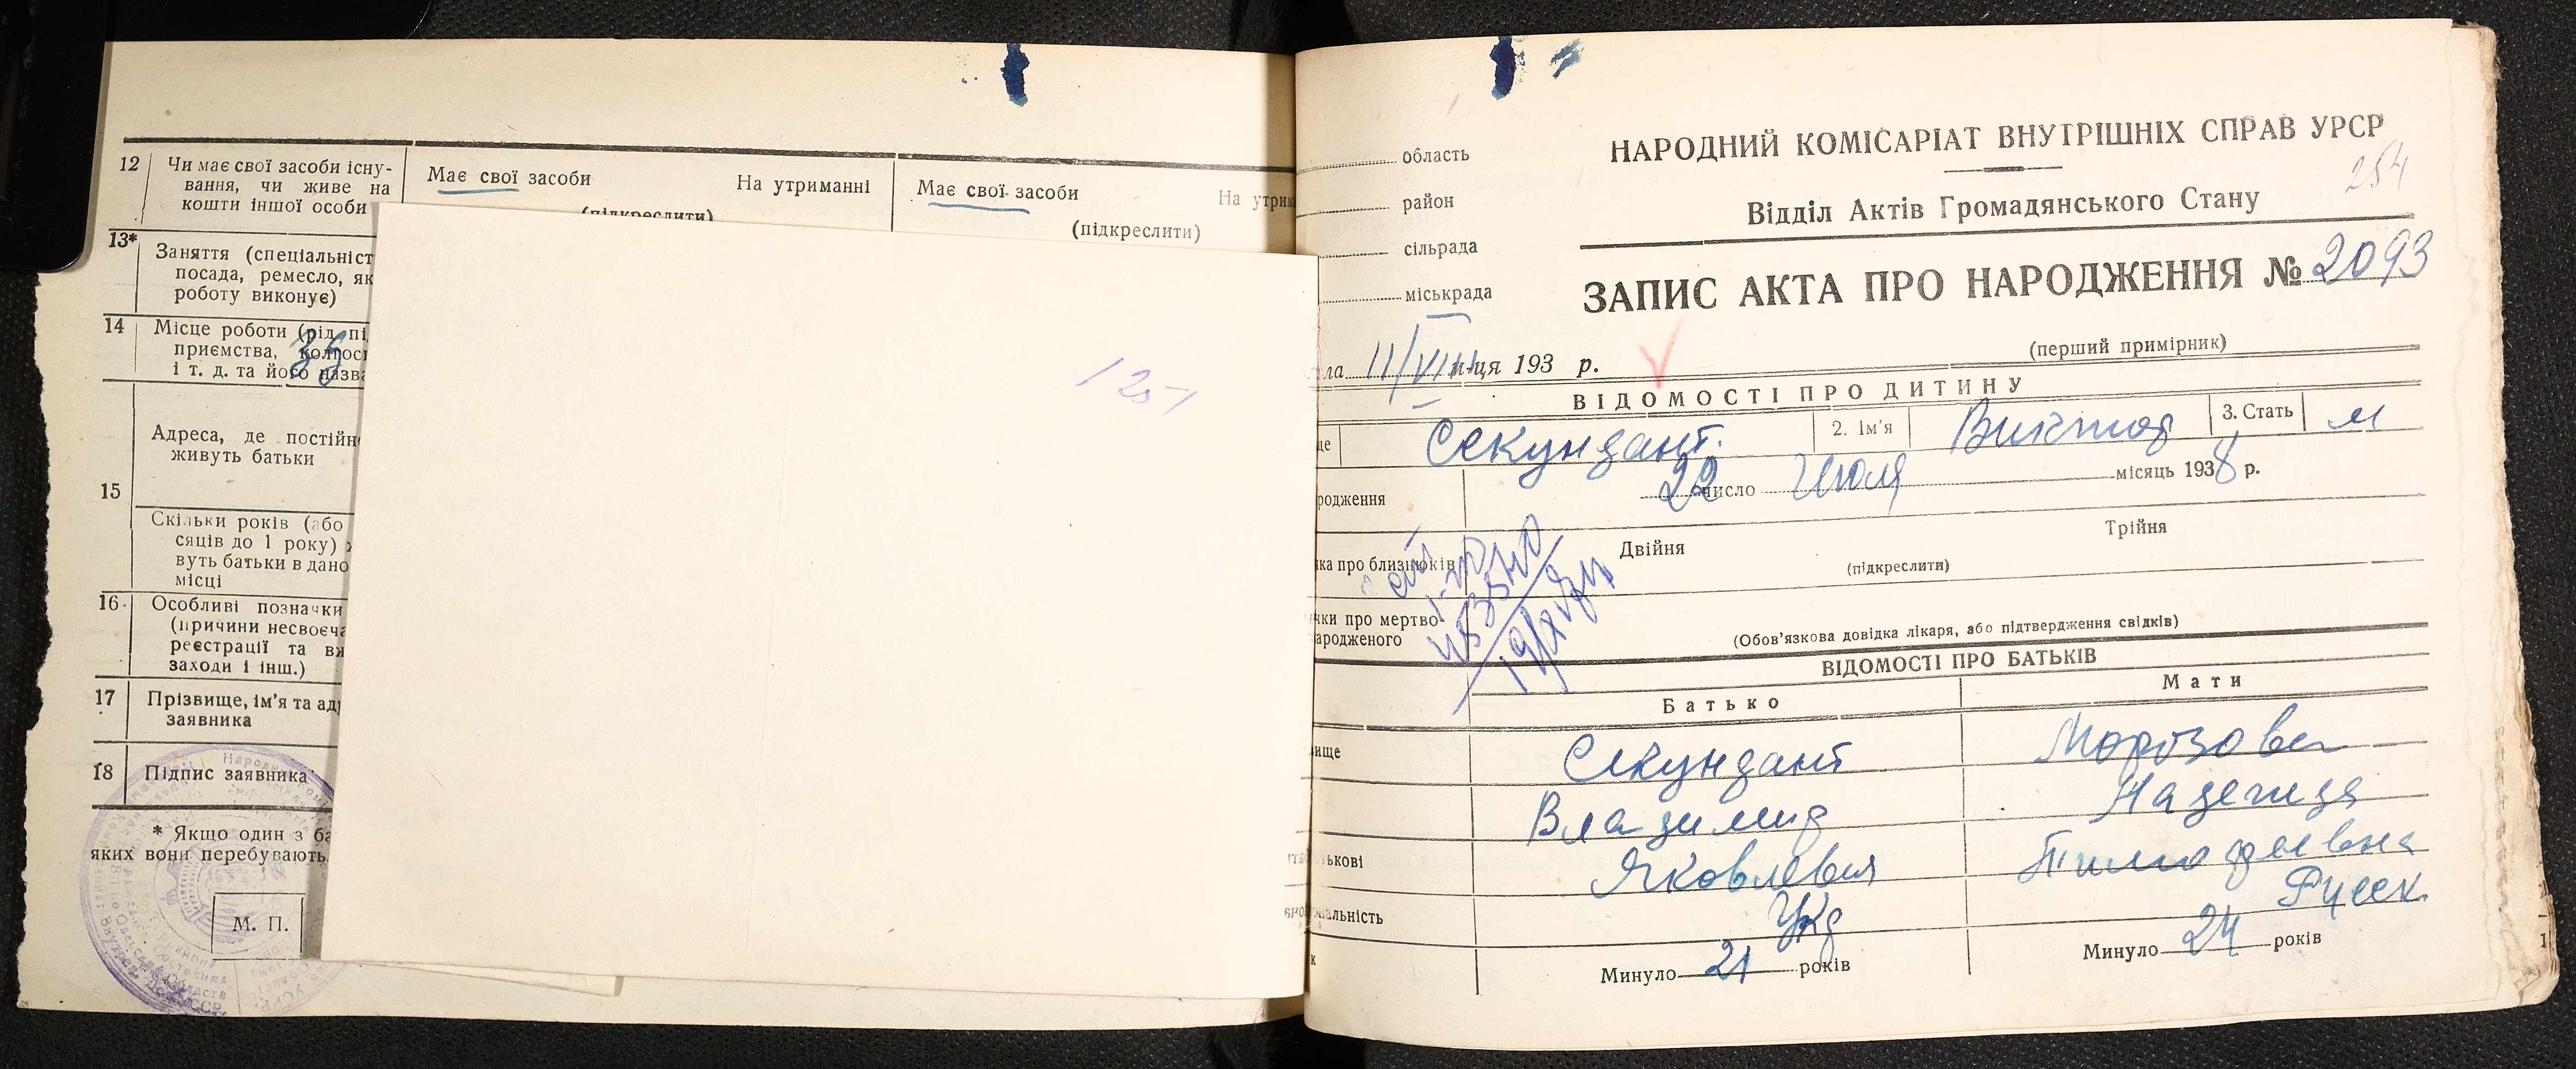 12
Чи має свої засоби існу-
вання, чи живе на
кошти іншої особи
Має свої засоби
На утриманні
(підкреслити)
Має свої засоби
На утрим
(підкреслити)
13*
Заняття (спеціальніст
посада, ремесло, як
роботу виконує)
14
Місце роботи (рід пі
приємства, колгосп
і т. д. та його назва
35
15
Адреса, де постійн
живуть батьки
Скільки років (або
сяців до 1 року)
вуть батьки в дано
місці
16
Особливі позначки
(причини несвоєча
реєстрації та вж
заходи і інш.)
17
Прізвище, ім'я та адр
заявника
18
Підпис заявника
* Якщо один з ба
яких вони перебувають
М. П.
251
область
район
сільрада
міськрада
НАРОДНИЙ КОМІСАРІАТ ВНУТРІШНІХ СПРАВ УРСР
254
Відділ Актів Громадянського Стану
ЗАПИС АКТА ПРО НАРОДЖЕННЯ № 2093
(перший примірник)
ла 11/VIII м-ця 193 р.
ВІДОМОСТІ ПРО ДИТИНУ
ще Секундант. 2. Ім'я Виктор 3. Стать м
родження 22 число Июля місяць 1938 р.
ка про близнюків Двійня Трійня
(підкреслити)
чки про мертво-
ародженого
(Обов'язкова довідка лікаря, або підтвердження свідків)
ВІДОМОСТІ ПРО БАТЬКІВ
Батько Мати
вище Секундант Морозова
Владимир Надежда
тькові Яковлевич Тимофеевна
нальність Укр Русск
к Минуло 21 років Минуло 24 років